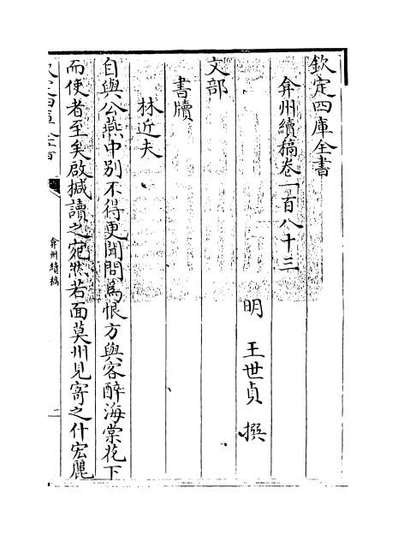 欽定四庫全書
弇州續稿巻一百八十三
明 王世貞 撰
文部
書牘
林近夫
自與公燕中别不得更聞問為恨方與客醉海棠花下
而使者至矣啟搣讀之宛然若面莫州見寄之什宏麗
弇州續稿
一